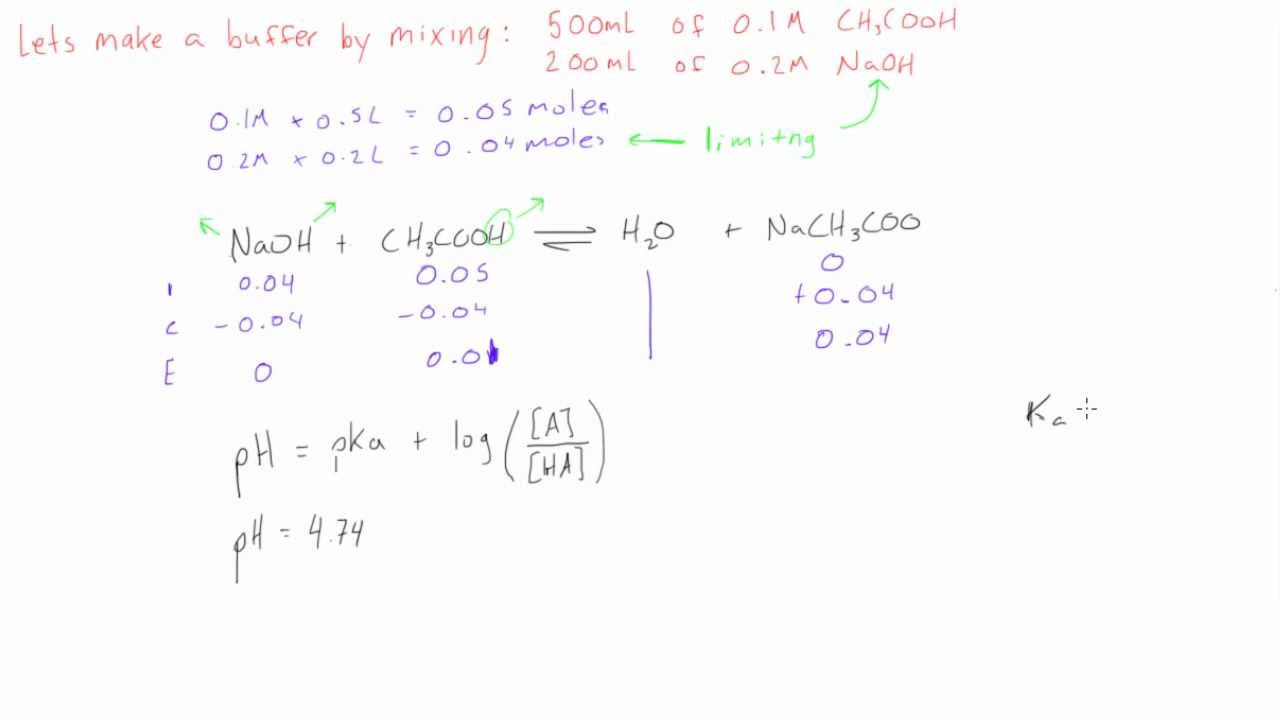 Lets make a buffer by mixing: 500mL of 0.1M CH₃COOH
200mL of 0.2M NaOH
0.1M × 0.5L = 0.05 moles
0.2M × 0.2L = 0.04 moles ← limitng
NaOH + CH₃COOH ⇌ H₂O + NaCH₃COO
I 0.04 0.05 0
C -0.04 -0.04 +0.04
E 0 0.01 0.04
Ka
pH = pKa + log([A]/[HA])
pH = 4.74